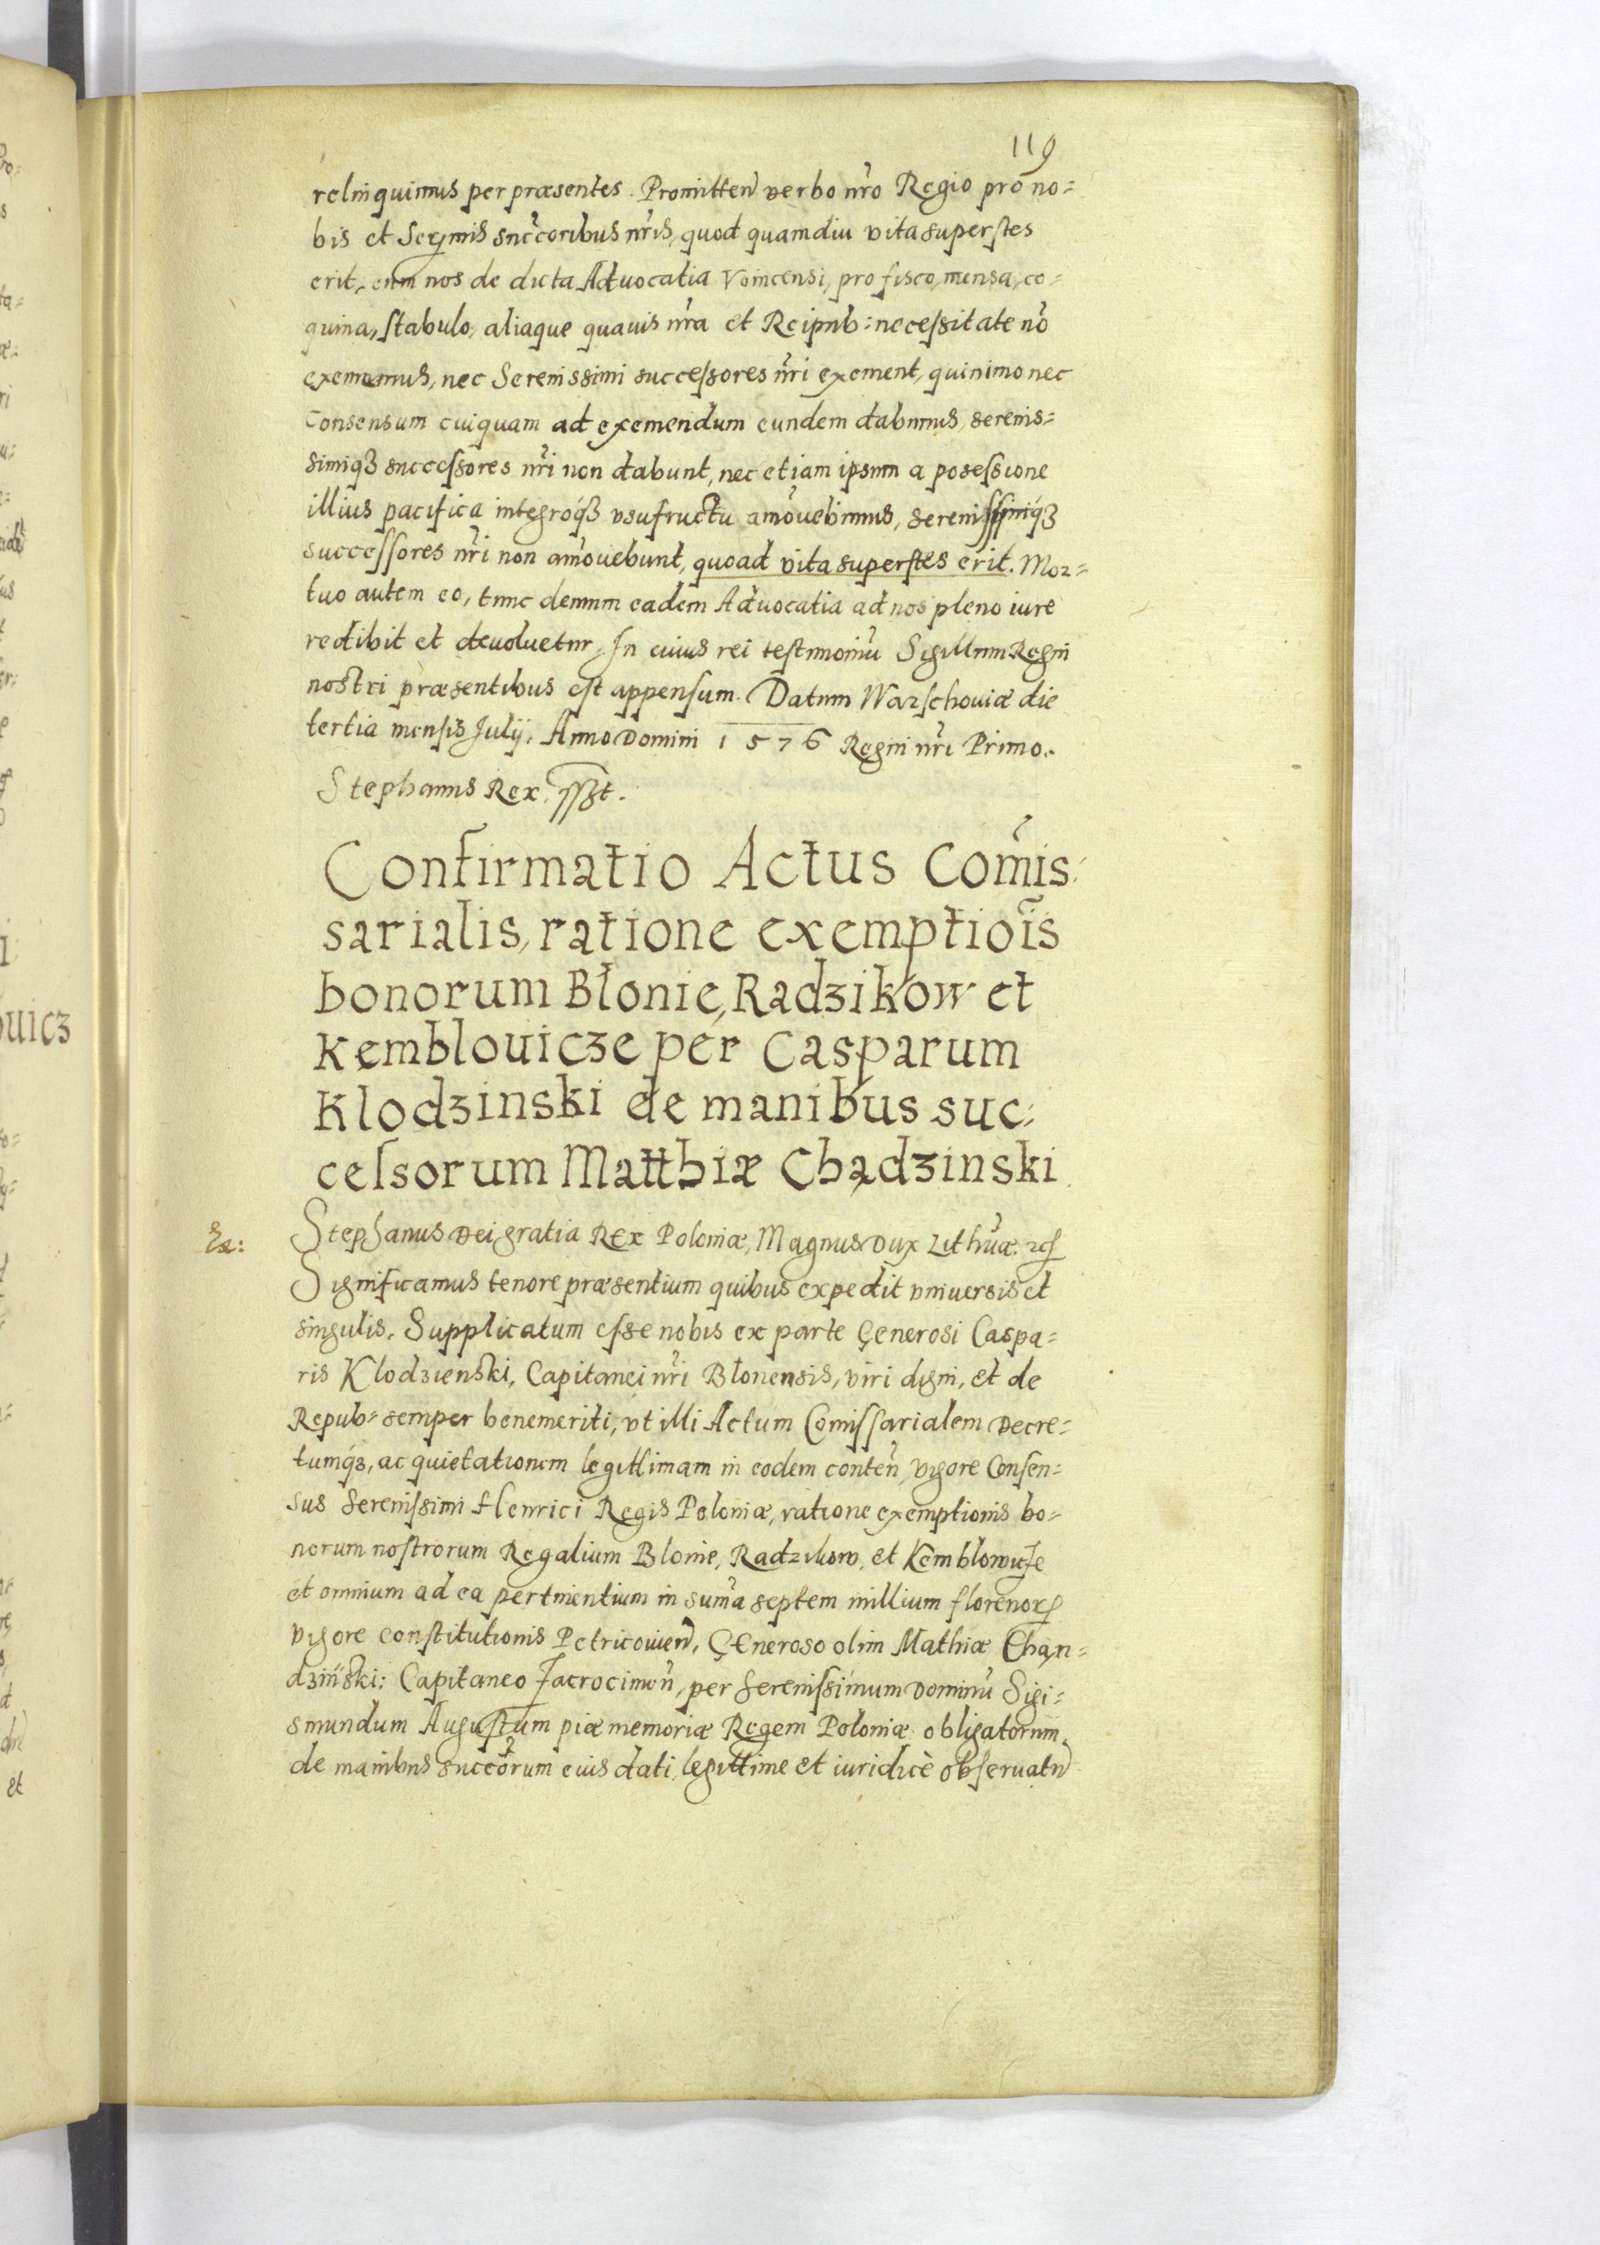 119
relinquimus per præsentes. Promitten verbo nr̃o Regio pro no=
bis et Serm̃is succ̃oribus nr̃is, quod quamdiu vita superstes
erit, eum nos de dicta Advocatia Voincensi, pro fisco, mensa, co=
quina, stabulo, aliaque quauis nr̃a et Reipub: necessitate nõ
exememus, nec Serenissimi successores nr̃i exement, quinimo nec
Consensum cuiquam ad exemendum eundem dabimus, serenis=
simiqȝ successores nr̃i non dabunt, nec etiam ipsum a posessione
illius pacifica integroqȝ vsufructu amouebimus, serenissimiqȝ
successores nr̃i non amouebunt, quoad vita superstes erit. Mor=
tuo autem eo, tunc demum eadem Aduocatia ad nos pleno iure
redibit et deuoluetur. In cuius rei testimoniũ Sigillum Regni
nostri præsentibus est appensum. Datum Warschouiæ die
tertia mensis Julij. Anno Domini 1576 Regni nr̃i Primo.
Stephanus Rex sszt.
Confirmatio Actus Com̃is:
sarialis, ratione exemptiõis
bonorum Błonie, Radzikow et
Kemblouicze per Casparum
Klodzinski de manibus suc:
cessorum Matthiæ Chądzinski
Ex:
Stephanus Dei gratia Rex Poloniæ, Magnus Dux Lithũæ. ꝛc
Significamus tenore præsentium quibus expedit vniuersis et
singulis. Supplicatum esse nobis ex parte Generosi Caspa=
ris Klodzienski, Capitanei nr̃i Blonensis, viri digni, et de
Repub= semper benemeriti, vt illi Actum Comissarialem Decre=
tumqȝ, ac quietationem legittimam in eodem conteñ, vigore Consen=
sus Serenissimi Henrici Regis Poloniæ, ratione exemptionis bo=
norum nostrorum Regalium Blonie, Radzikow, et Kemblowicze
et omnium ad ea pertinentium in sum̃a septem millium florenorꝝ
vigore constitutionis Petricouieñ, Generoso olim Mathiæ Chąn=
dzinski: Capitaneo Zacrocimeñ, per Serenissimum Dominũ Sigi=
smundum Augustum piæ memoriæ Regem Poloniæ obligatorum,
de manibus succorum eius dati, legittime et iuridicè obseruatũ